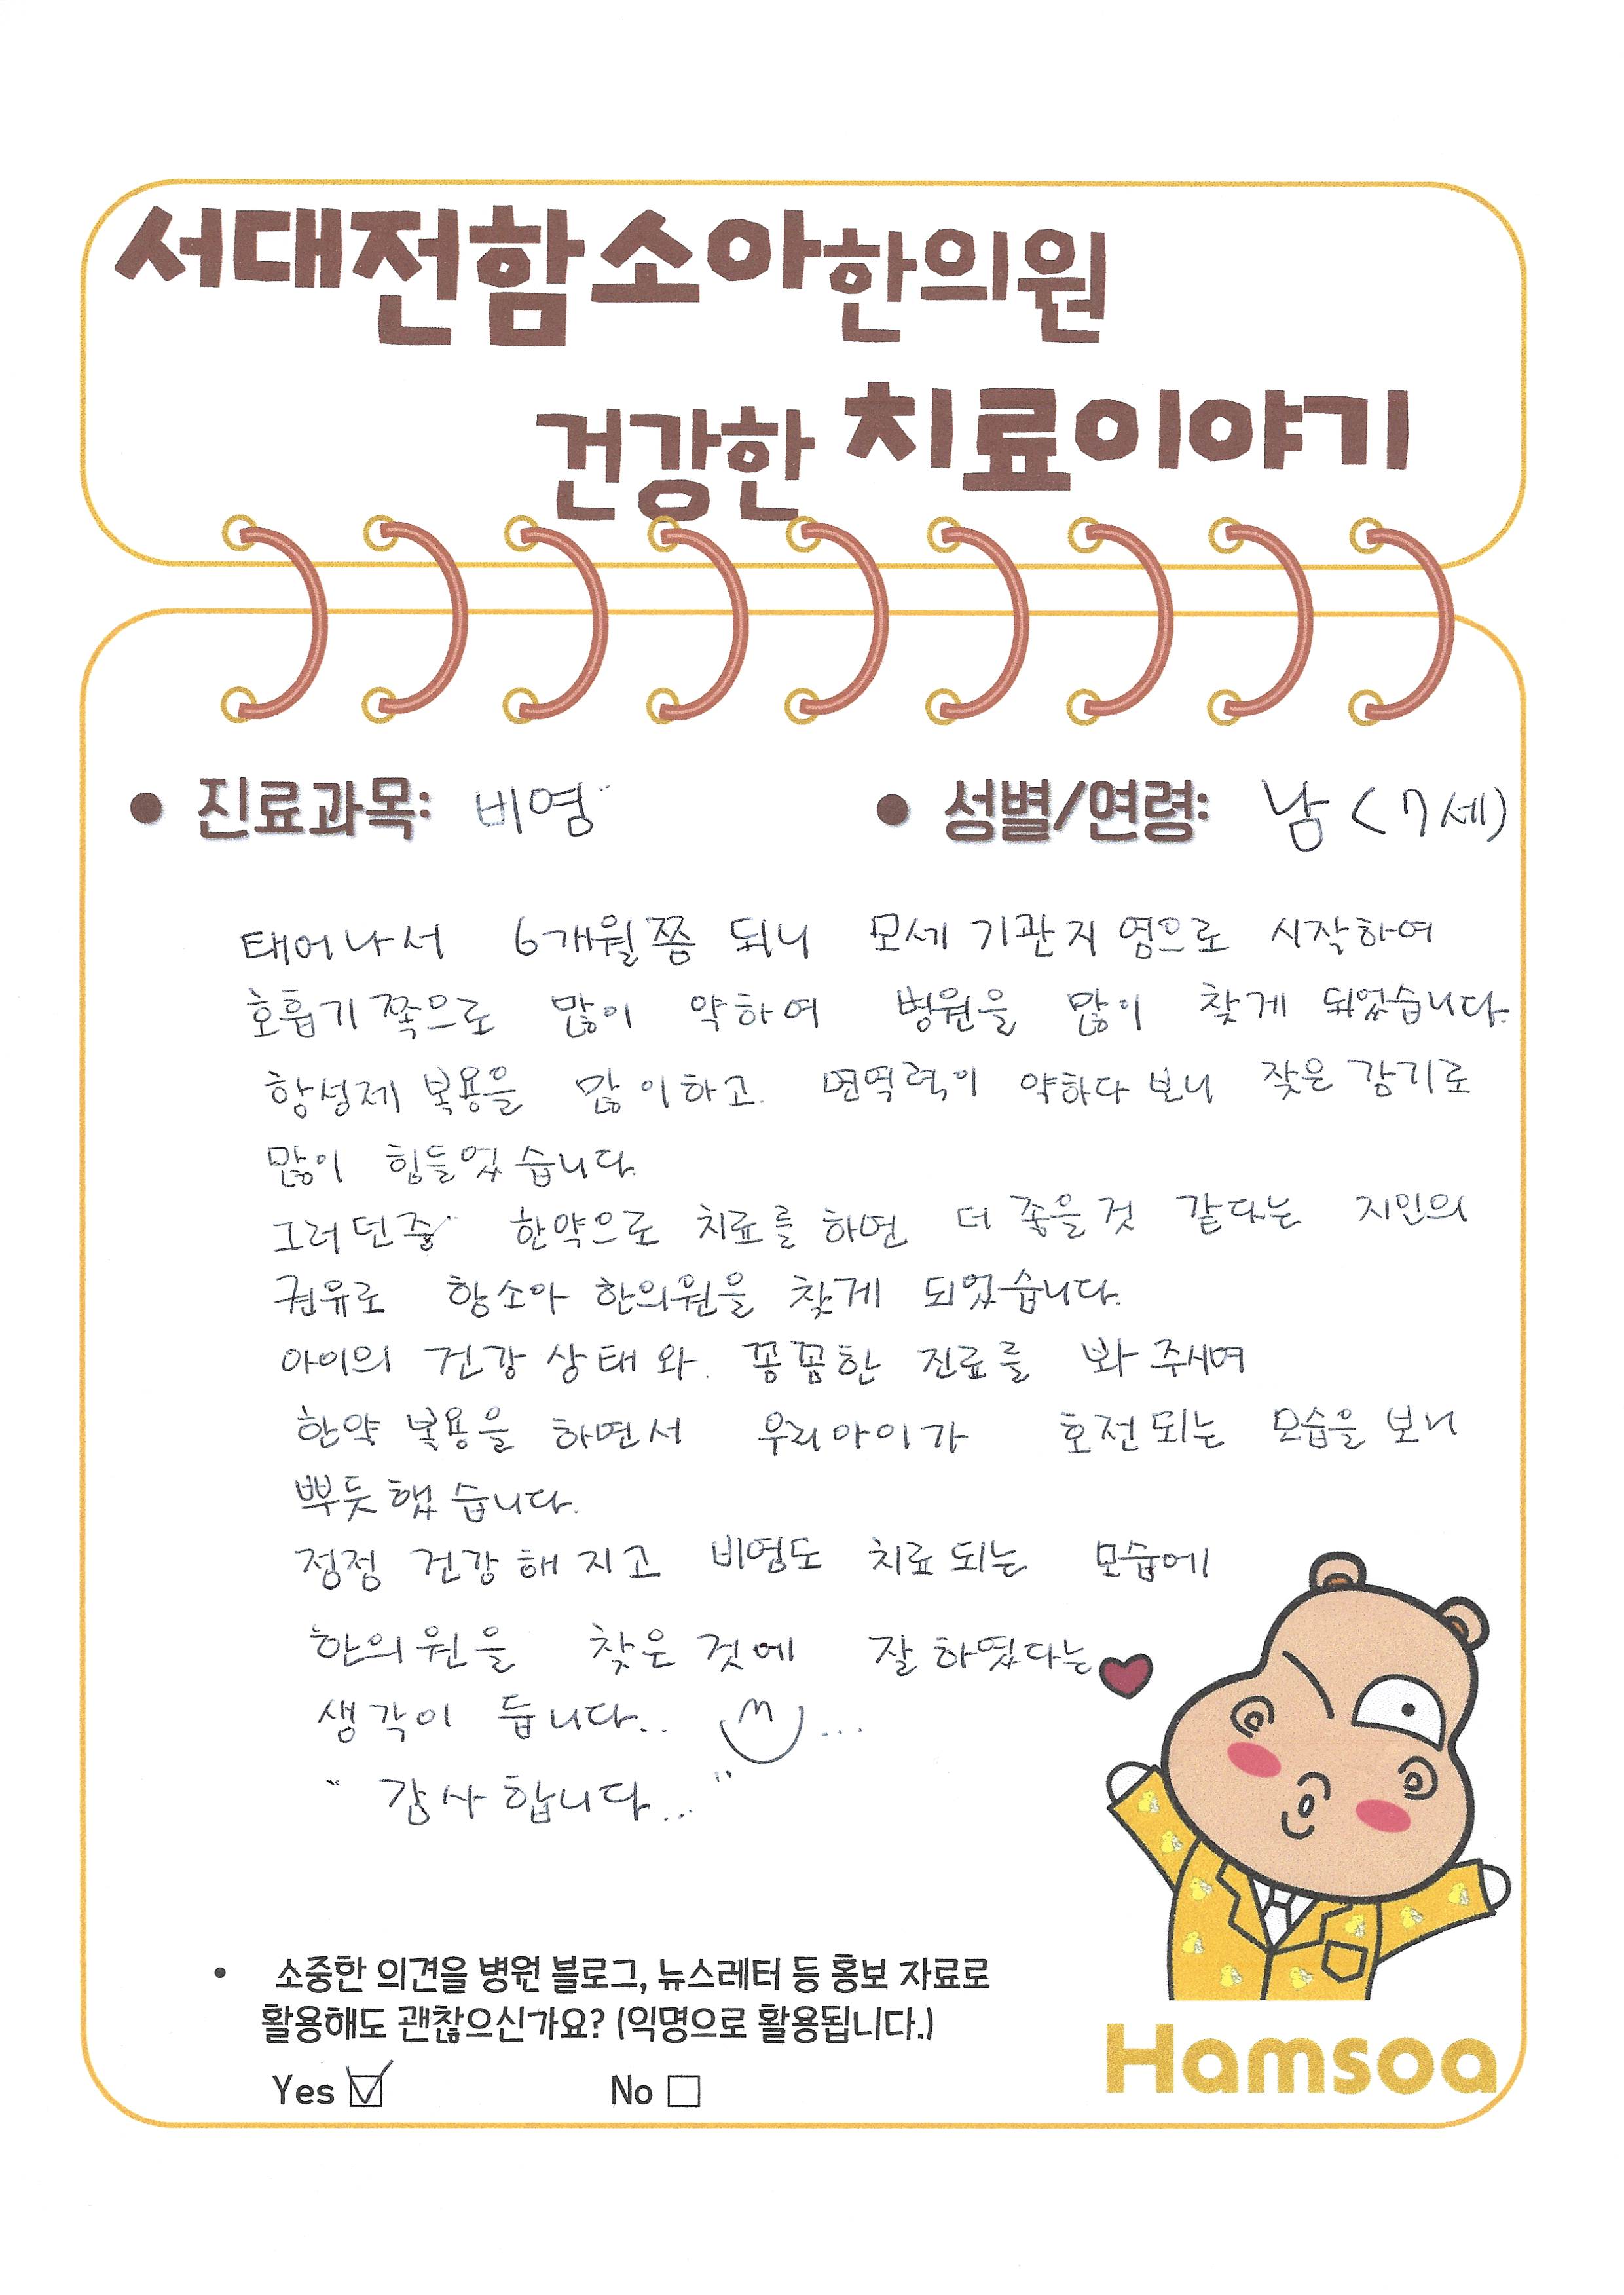 서대전함소아한의원
건강한 치료이야기
• 진료과목: 비염 • 성별/연령: 남 (7세)
태어나서 6개월쯤 되니 모세기관지염으로 시작하여
호흡기쪽으로 많이 약하여 병원을 많이 찾게 되었습니다.
항생제 복용을 많이하고 면역력이 약하다 보니 잦은 감기로
많이 힘들었습니다.
그러던중 한약으로 치료를 하면 더 좋을것 같다는 지인의
권유로 함소아 한의원을 찾게 되었습니다.
아이의 건강 상태와 꼼꼼한 진료를 봐 주시며
한약 복용을 하면서 우리아이가 호전되는 모습을 보니
뿌듯했습니다.
점점 건강해지고 비염도 치료되는 모습에
한의원을 찾은것에 잘하였다는
생각이 듭니다.. ...
" 감사합니다... "
• 소중한 의견을 병원 블로그, 뉴스레터 등 홍보 자료로
활용해도 괜찮으신가요? (익명으로 활용됩니다.)
Yes ☑ No ☐
Hamsoa